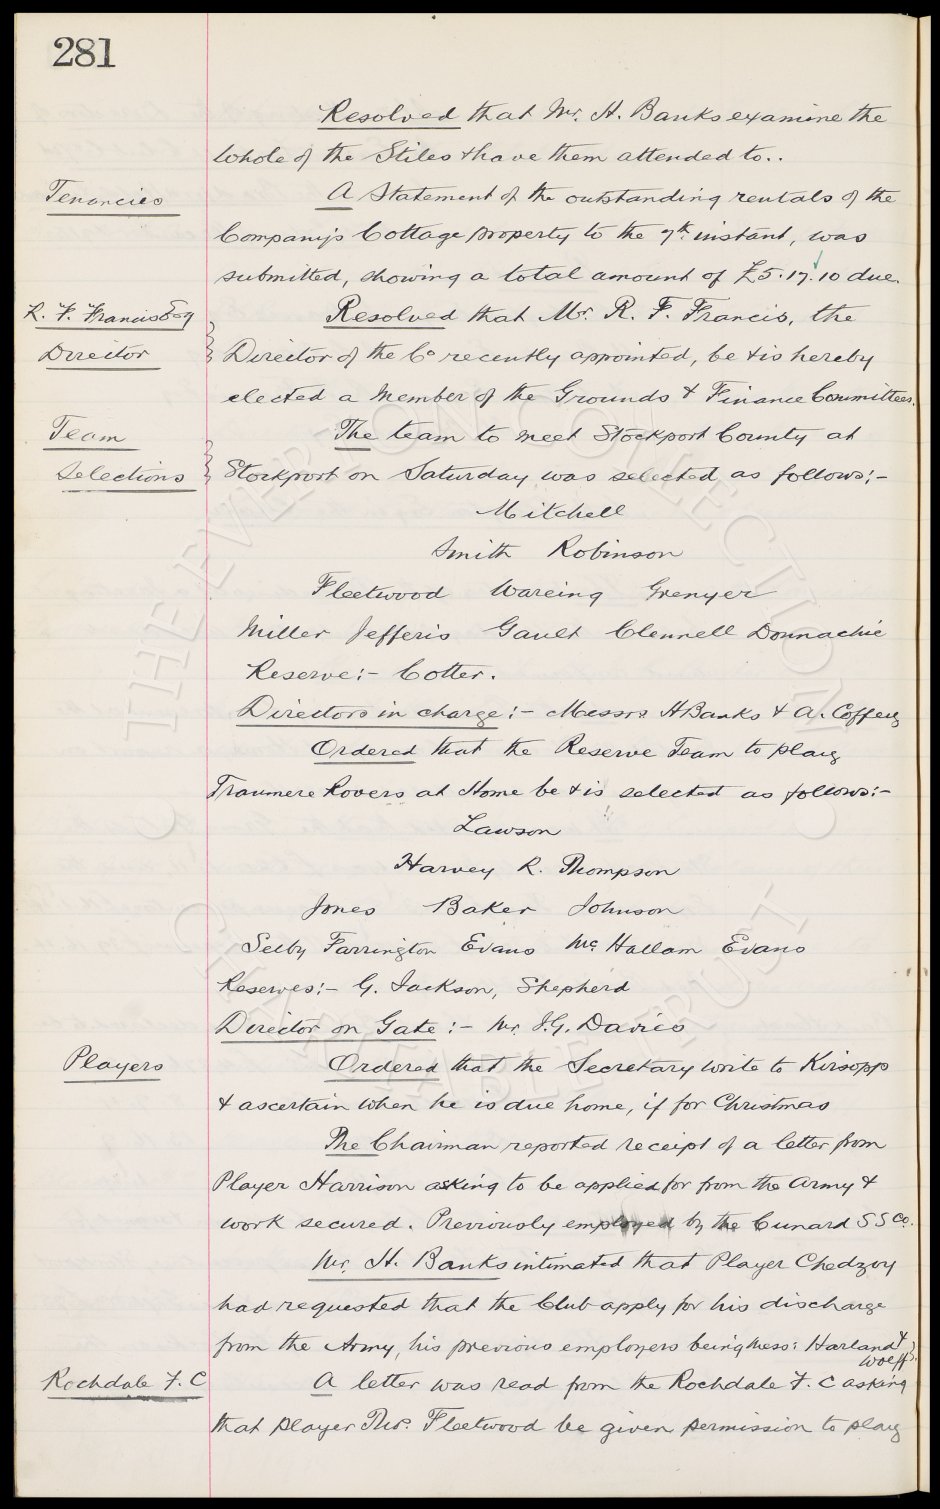 281
Resolved that Mr. H. Banks examine the
whole of the Stiles & have them attended to..
Tenancies
A Statement of the outstanding rentals of the
Company's Cottage property to the 7th instant, was
submitted, showing a total amount of £5.17.10 due.
R. F. Francis Esq
Director
Resolved that Mr. R. F. Francis, the
Director of the Co recently appointed, be & is hereby
elected a Member of the Grounds & Finance Committees.
Team
Selections
The team to meet Stockport County at
Stockport on Saturday was selected as follows:-
Mitchell
Smith Robinson
Fleetwood Wareing Grenyer
Miller Jefferis Gault Clennell Donnachie
Reserve:- Cotter.
Directors in charge:- Messrs H Banks & A. Coffey
Ordered that the Reserve Team to play
Tranmere Rovers at Home be & is selected as follows:-
Lawson
Harvey R. Thompson
Jones Baker Johnson
Selby Farrington Evans Mc Hallam Evans
Reserves:- G. Jackson, Shepherd
Director on Gate:- Mr. J. G. Davies
Players
Ordered that the Secretary write to Kirsopp
& ascertain when he is due home, if for Christmas
The Chairman reported receipt of a letter from
Player Harrison asking to be applied for from the Army &
work secured. Previously employed by the Cunard S S Co.
Mr. H. Banks intimated that Player Chedzoy
had requested that the Club apply for his discharge
from the Army, his previous employers being Mess: Harland &
Wolff.
Rochdale F. C
A letter was read from the Rochdale F. C asking
that player Thos. Fleetwood be given permission to play
THE EVERTON COLLECTION
CHARITABLE TRUST